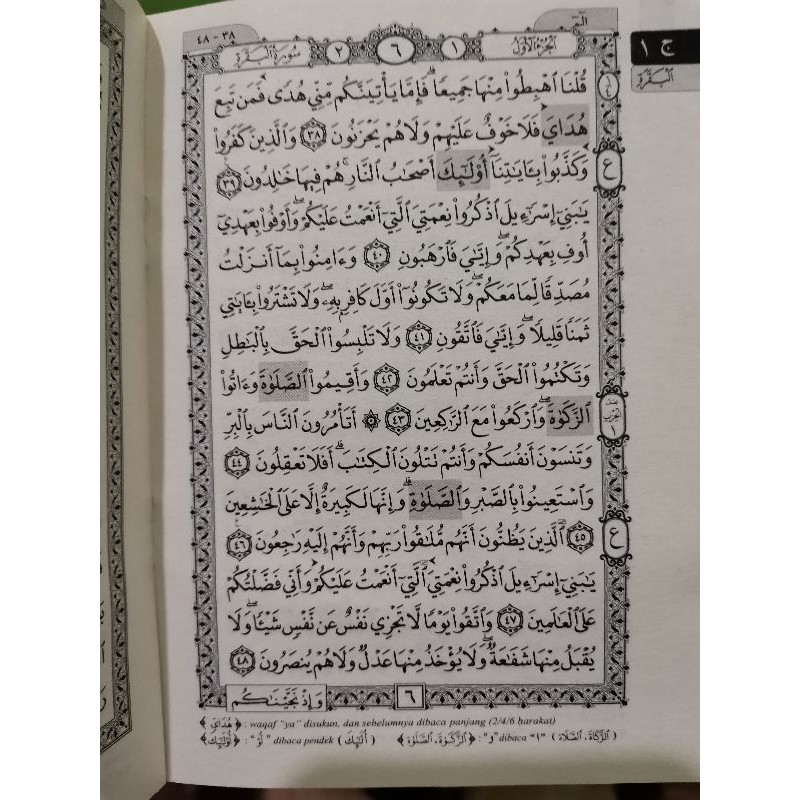 الٓمٓ
ج ١
البقرة
٣٨ - ٤٨
الجزء الأول
١
٦
٢
سورة البقرة
قُلْنَا اهْبِطُوا۟ مِنْهَا جَمِيعًا ۖ فَإِمَّا يَأْتِيَنَّكُم مِّنِّي هُدًى فَمَن تَبِعَ
هُدَايَ فَلَا خَوْفٌ عَلَيْهِمْ وَلَا هُمْ يَحْزَنُونَ ﴿٣٨﴾ وَالَّذِينَ كَفَرُوا۟
وَكَذَّبُوا۟ بِـَٔايَـٰتِنَآ أُو۟لَـٰٓئِكَ أَصْحَـٰبُ النَّارِ ۖ هُمْ فِيهَا خَـٰلِدُونَ ﴿٣٩﴾
يَـٰبَنِيٓ إِسْرَٰٓءِيلَ اذْكُرُوا۟ نِعْمَتِيَ الَّتِيٓ أَنْعَمْتُ عَلَيْكُمْ وَأَوْفُوا۟ بِعَهْدِيٓ
أُوفِ بِعَهْدِكُمْ ۖ وَإِيَّـٰيَ فَارْهَبُونِ ﴿٤٠﴾ وَءَامِنُوا۟ بِمَآ أَنزَلْتُ
مُصَدِّقًا لِّمَا مَعَكُمْ ۖ وَلَا تَكُونُوٓا۟ أَوَّلَ كَافِرٍ بِهِۦ ۖ وَلَا تَشْتَرُوا۟ بِـَٔايَـٰتِي
ثَمَنًا قَلِيلًا ۖ وَإِيَّـٰيَ فَاتَّقُونِ ﴿٤١﴾ وَلَا تَلْبِسُوا۟ الْحَقَّ بِالْبَـٰطِلِ
وَتَكْتُمُوا۟ الْحَقَّ وَأَنتُمْ تَعْلَمُونَ ﴿٤٢﴾ وَأَقِيمُوا۟ الصَّلَوٰةَ وَءَاتُوا۟
الزَّكَوٰةَ ۖ وَارْكَعُوا۟ مَعَ الرَّٰكِعِينَ ﴿٤٣﴾ ۞ أَتَأْمُرُونَ النَّاسَ بِالْبِرِّ
وَتَنسَوْنَ أَنفُسَكُمْ وَأَنتُمْ تَتْلُونَ الْكِتَـٰبَ ۚ أَفَلَا تَعْقِلُونَ ﴿٤٤﴾
وَاسْتَعِينُوا۟ بِالصَّبْرِ وَالصَّلَوٰةِ ۚ وَإِنَّهَا لَكَبِيرَةٌ إِلَّا عَلَى الْخَـٰشِعِينَ
﴿٤٥﴾ الَّذِينَ يَظُنُّونَ أَنَّهُم مُّلَـٰقُوا۟ رَبِّهِمْ وَأَنَّهُمْ إِلَيْهِ رَٰجِعُونَ ﴿٤٦﴾
يَـٰبَنِيٓ إِسْرَٰٓءِيلَ اذْكُرُوا۟ نِعْمَتِيَ الَّتِيٓ أَنْعَمْتُ عَلَيْكُمْ وَأَنِّي فَضَّلْتُكُمْ
عَلَى الْعَـٰلَمِينَ ﴿٤٧﴾ وَاتَّقُوا۟ يَوْمًا لَّا تَجْزِي نَفْسٌ عَن نَّفْسٍ شَيْـًٔا ۖ وَلَا
يُقْبَلُ مِنْهَا شَفَـٰعَةٌ وَلَا يُؤْخَذُ مِنْهَا عَدْلٌ وَلَا هُمْ يُنصَرُونَ ﴿٤٨﴾
ع
ع
٦
وَإِذْ نَجَّيْنَـٰكُم
﴿ هُدَايَ ﴾ : waqaf "ya" disukun, dan sebelumnya dibaca panjang (2/4/6 harakat)
﴿ أُو۟لَـٰٓئِكَ ﴾ : "أُوْ" dibaca pendek ( أُلَـٰٓئِكَ ) ﴿ الزَّكَوٰةَ، الصَّلَوٰةَ ﴾ : "و" dibaca "ا" ( الزَّكَاةَ، الصَّلَاةَ )